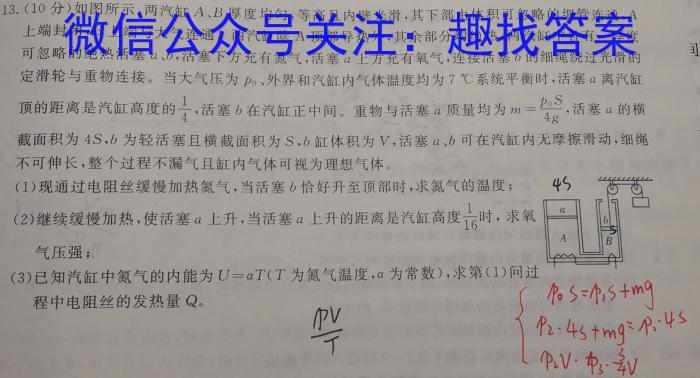 13.(10分)如图所示,两汽缸A、B厚度均匀,等高且内壁光滑,其下部由体积可忽略的细管连通,A
上端封闭
微信公众号关注:趣找答案
可忽略的绝热活塞a、b,活塞下方充有氮气,活塞a上方充有氧气,连接活塞b的细绳绕过光滑的
定滑轮与重物连接。当大气压为p₀、外界和汽缸内气体温度均为7℃系统平衡时,活塞a离汽缸
顶的距离是汽缸高度的1/4,活塞b在汽缸正中间。重物与活塞a质量均为m=p₀S/4g,活塞a的横
截面积为4S,b为轻活塞且横截面积为S,b缸体积为V,活塞a、b可在汽缸内无摩擦滑动,细绳
不可伸长,整个过程不漏气且缸内气体可视为理想气体。
(1)现通过电阻丝缓慢加热氮气,当活塞b恰好升至顶部时,求氮气的温度;
(2)继续缓慢加热,使活塞a上升,当活塞a上升的距离是汽缸高度1/16时,求氧
气压强;
(3)已知汽缸中氮气的内能为U=αT(T为氮气温度,α为常数),求第(1)问过
程中电阻丝的发热量Q。
4S
a
b
S
A
B
pV/T
p₀S=p₁S+mg
p₂·4S+mg=p₁·4S